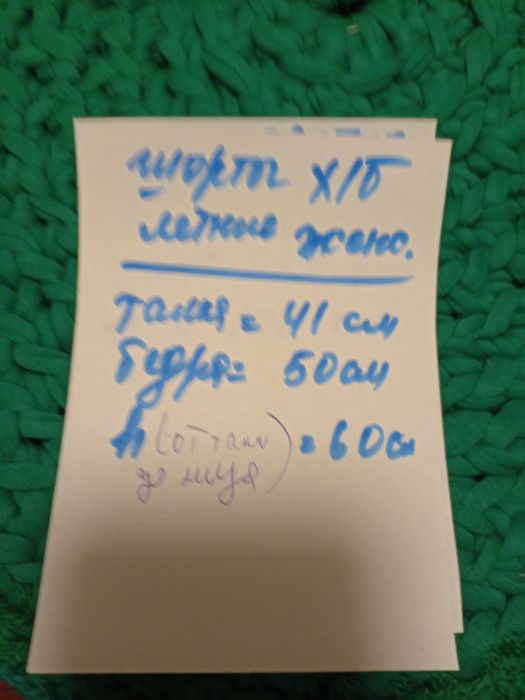 шорты х/б
летние женс.
талия = 41 см
бедра = 50 см
h (от талии = 60 см
до низа)